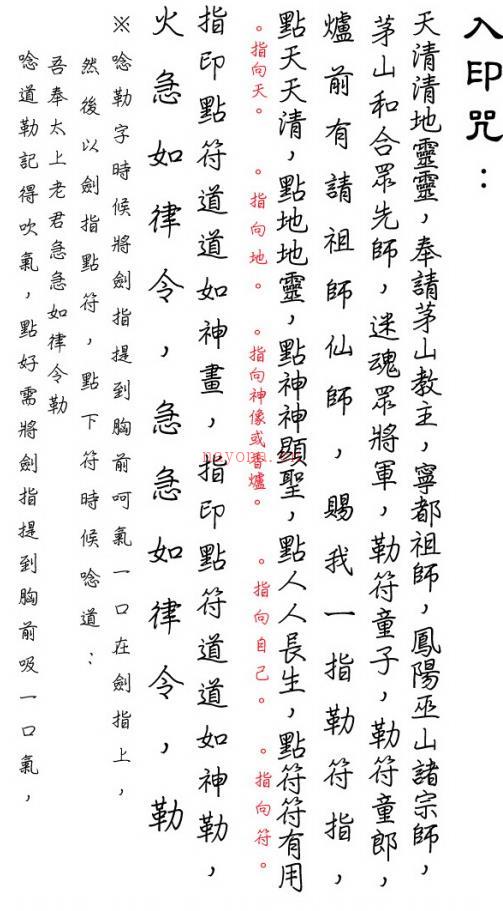 入印咒：
天清清地靈靈，奉請茅山教主，寧都祖師，鳳陽巫山諸宗師，
茅山和合眾先師，迷魂眾將軍，勒符童子，勒符童郎，
爐前有請祖師仙師，賜我一指勒符指，
點天天清，點地地靈，點神神顯聖，點人人長生，點符符有用
。指向天。 。指向地。 。指向神像或香爐。 。指向自己。 。指向符。
指印點符道道如神畫，指印點符道道如神勒，
火急如律令，急急如律令，勒
※唸勒字時候將劍指提到胸前呵氣一口在劍指上，
然後以劍指點符，點下符時候唸道：
吾奉太上老君急急如律令勒
唸道勒記得吹氣，點好需將劍指提到胸前吸一口氣，